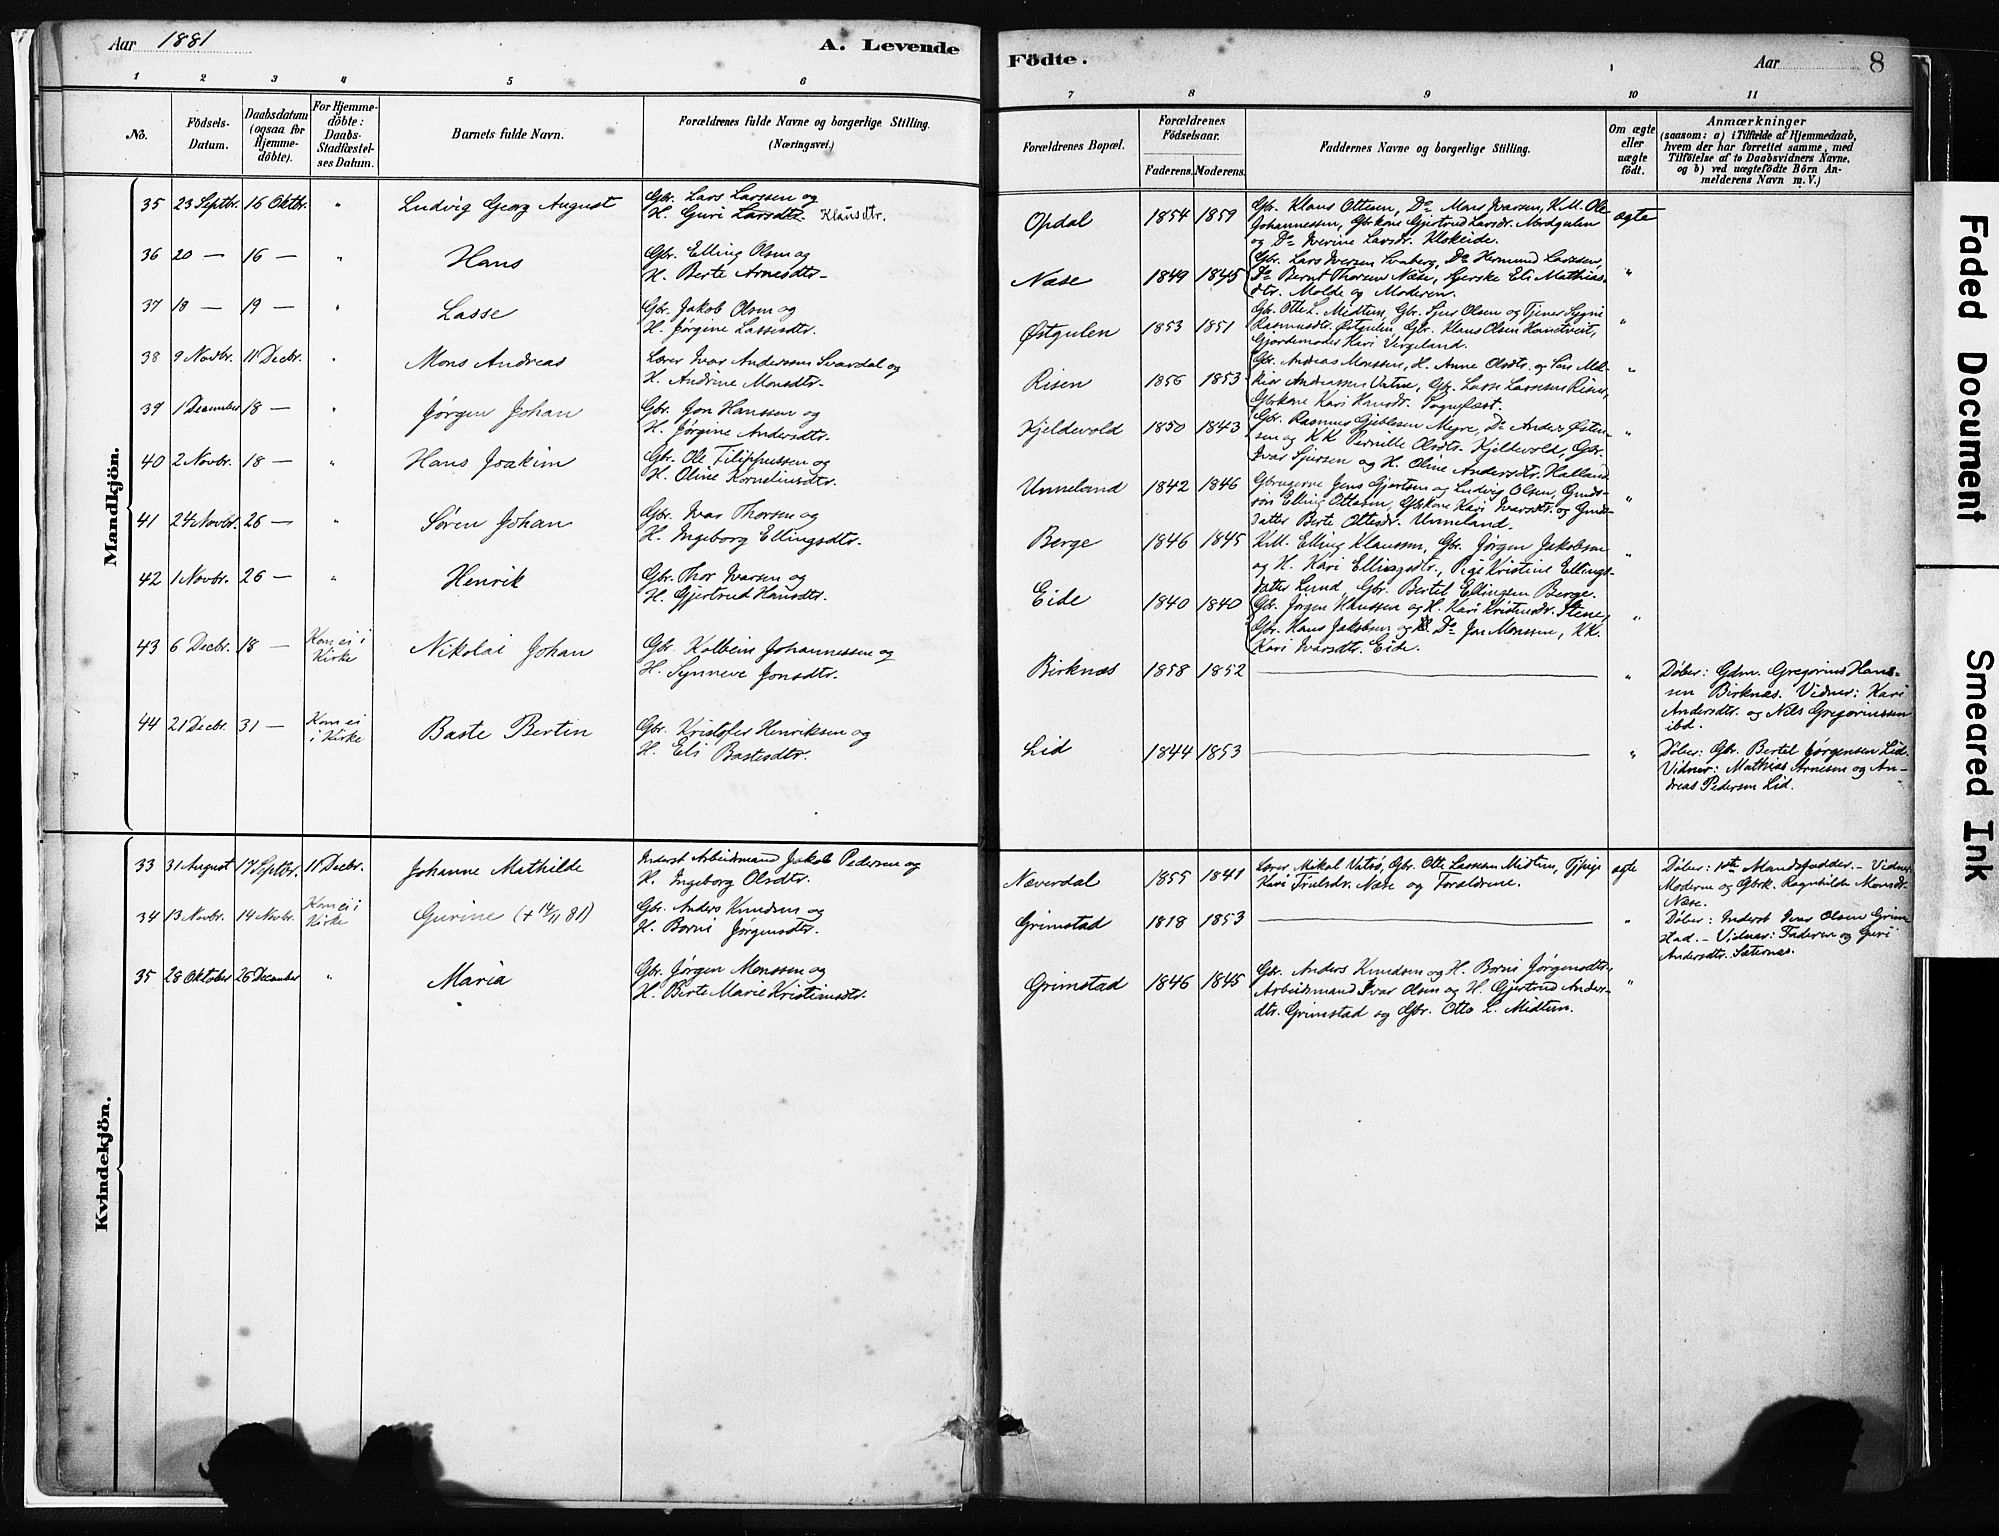 Aar 1881
A. Levende
Födte.
Aar
8
1 2 3 4 5 6
7 8 9 10 11
No.
Födsels-
Datum.
Daabsdatum
(ogsaa for
Hjemme-
döbte).
For Hjemme-
döbte:
Daabs-
Stadfæstel-
ses Datum.
Barnets fulde Navn.
Forældrenes fulde Navne og borgerlige Stilling.
(Næringsvei.)
Forældrenes Bopæl.
Forældrenes
Födselsaar.
Faderens. Moderens.
Faddernes Navne og borgerlige Stilling.
Om ægte
eller
uægte
födt.
Anmærkninger
(saasom: a) i Tilfælde af Hjemmedaab,
hvem der har forrettet samme, med
Tilföielse af to Daabsvidners Navne,
og b) ved uægtefödte Börn An-
melderens Navn m. V.)
Mandkjön.
35 23 Septbr. 16 Oktbr. " Ludvig Georg August
Gbr. Lars Larssen og
H. Guri Larsdtr. Klausdtr.
Opdal 1854 1859
Gbr. Klaus Ottesen, Do Mons Ivarsen, K.M. Ole
Johannessen, Gbrkone Gjertrud Larsdtr. Nordgulen
og Do Iverine Larsdr. Kleheide.
ægte
36 20 — 16 — " Hans
Gbr. Elling Olsen og
H. Berte Arnesdtr.
Næse 1849 1845
Gbr. Lars Iversen Svaberg, Do Hermund Lassesen,
Do Bernt Thorsen Næse, Gjerske Eli Mathias-
dtr. Molde og Moderen.
"
37 18 — 19 — " Lasse
Gbr. Jakob Olsen og
H. Jørgine Lassesdtr.
Østgulen 1853 1851
Gbr. Otte L. Midtun, Gbr. Sjur Olsen og Tjener Sygni
Rasmusdtr. Østgulen, Gbr. Klaus Olsen
Gjordemoder Kari Virgeland.
"
38 9 Novbr. 11 Decbr. " Mons Andreas
Lærer Ivar Anderssen Svardal og
H. Andrine Monsdtr.
Risen 1856 1853
Gbr. Andreas Monssen, H. Anne Olsdtr. og Søn Mel-
kior Andreassen Vatne, Gbr. Lasse Lassesen Risen,
Gbrkone Kari Hansdr. Sognefæst.
"
39 1 December 18 — " Jørgen Johan
Gbr. Jon Hanssen og
H. Jørgine Andersdtr.
Kjeldevold 1850 1843
Gbr. Rasmus Myre, Do Anders Østen-
sen og K.K. Pernille Olsdtr. Kjeldevold, Gbr.
Ivar Sjursen og H. Oline Andersdtr. Halland
"
40 2 Novbr. 18 — " Hans Joakim
Gbr. Ole Filippussen og
H. Oline Korneliusdtr.
Unneland 1842 1846
Gbrugerne Jens Gjertsen og Ludvig Olsen, Gmds-
søn Elling Ottesen, Gbrkone Kari Ivarsdtr. og Gmds-
datter Berte Ottesdr. Unneland.
"
41 24 Novbr. 26 — " Søren Johan
Gbr. Ivar Thorsen og
H. Ingeborg Ellingsdtr.
Berge 1846 1845
K.M. Elling Klaussen, Gbr. Jørgen Jakobsen
og H. Kari Ellingsdtr., Pige Kristine Ellings-
datter Lund, Gbr. Bertel Ellingsen Berge.
"
42 1 Novbr. 26 — " Henrik
Gbr. Thor Ivarsen og
H. Gjertrud Hansdtr.
Eide 1840 1840
Gbr. Jørgen Hanssen og H. Kari Kristensdr. Stene,
Gbr. Hans Jakobsen og Do Jon Monssen, K.K.
Kari Ivarsdtr. Eide.
"
43 6 Decbr. 18 — Kom ei i
Kirke
Nikolai Johan
Gbr. Kolbein Johannessen og
H. Synneve Jonsdtr.
Birknæs 1858 1852 "
Døber: Gdm. Gregorius Hans-
sen Birknæs. Vidner: Kari
Andersdtr. og Nils Gregoriussen
ibd.
44 21 Decbr. 31 — Kom ei
i Kirke
Baste Bertin
Gbr. Kristofer Henriksen og
H. Eli Bastesdtr.
Lid 1844 1853 "
Døber: Gbr. Bertel Jørgensen Lid.
Vidner: Mathias Arnesen og An-
dreas Pedersen Lid.
Kvindekjön.
33 31 August 17 Septbr. 11 Decbr. Johanne Mathilde
Inderst Arbeidsmand Jakob Pedersen og
H. Ingeborg Olsdtr.
Næverdal 1855 1841
Lærer Mikal Vatsø, Gbr. Otte Lassesen Midtun, Tjpige
Kari Trulsdr. Næse og Forældrene.
ægte
Døber: Mandsfadder. - Vidner
Moderen og Gbrk. Ragnhilde Monsdr.
Næse.
34 13 Novbr. 14 Novbr. Kom ei i
Kirke
Gurine (+ 14/11 81)
Gbr. Anders Knudsen og
H. Borni Jørgensdtr.
Grimstad 1818 1853 "
Døber: Inderst Ivar Olsen Grim
stad. - Vidner: Faderen og Guri
Andersdtr. Sæternes.
35 28 Oktober 26 December " Maria
Gbr. Jørgen Monssen og
H. Berte Marie Kristiansdtr.
Grimstad 1846 1845
Gbr. Anders Knudsen og H. Borni Jørgensdtr.,
Arbeidsmand Ivar Olsen og H. Gjertrud Anders-
dtr. Grimstad og Gbr. Otto L. Midtun.
"
Faded Document
Smeared Ink